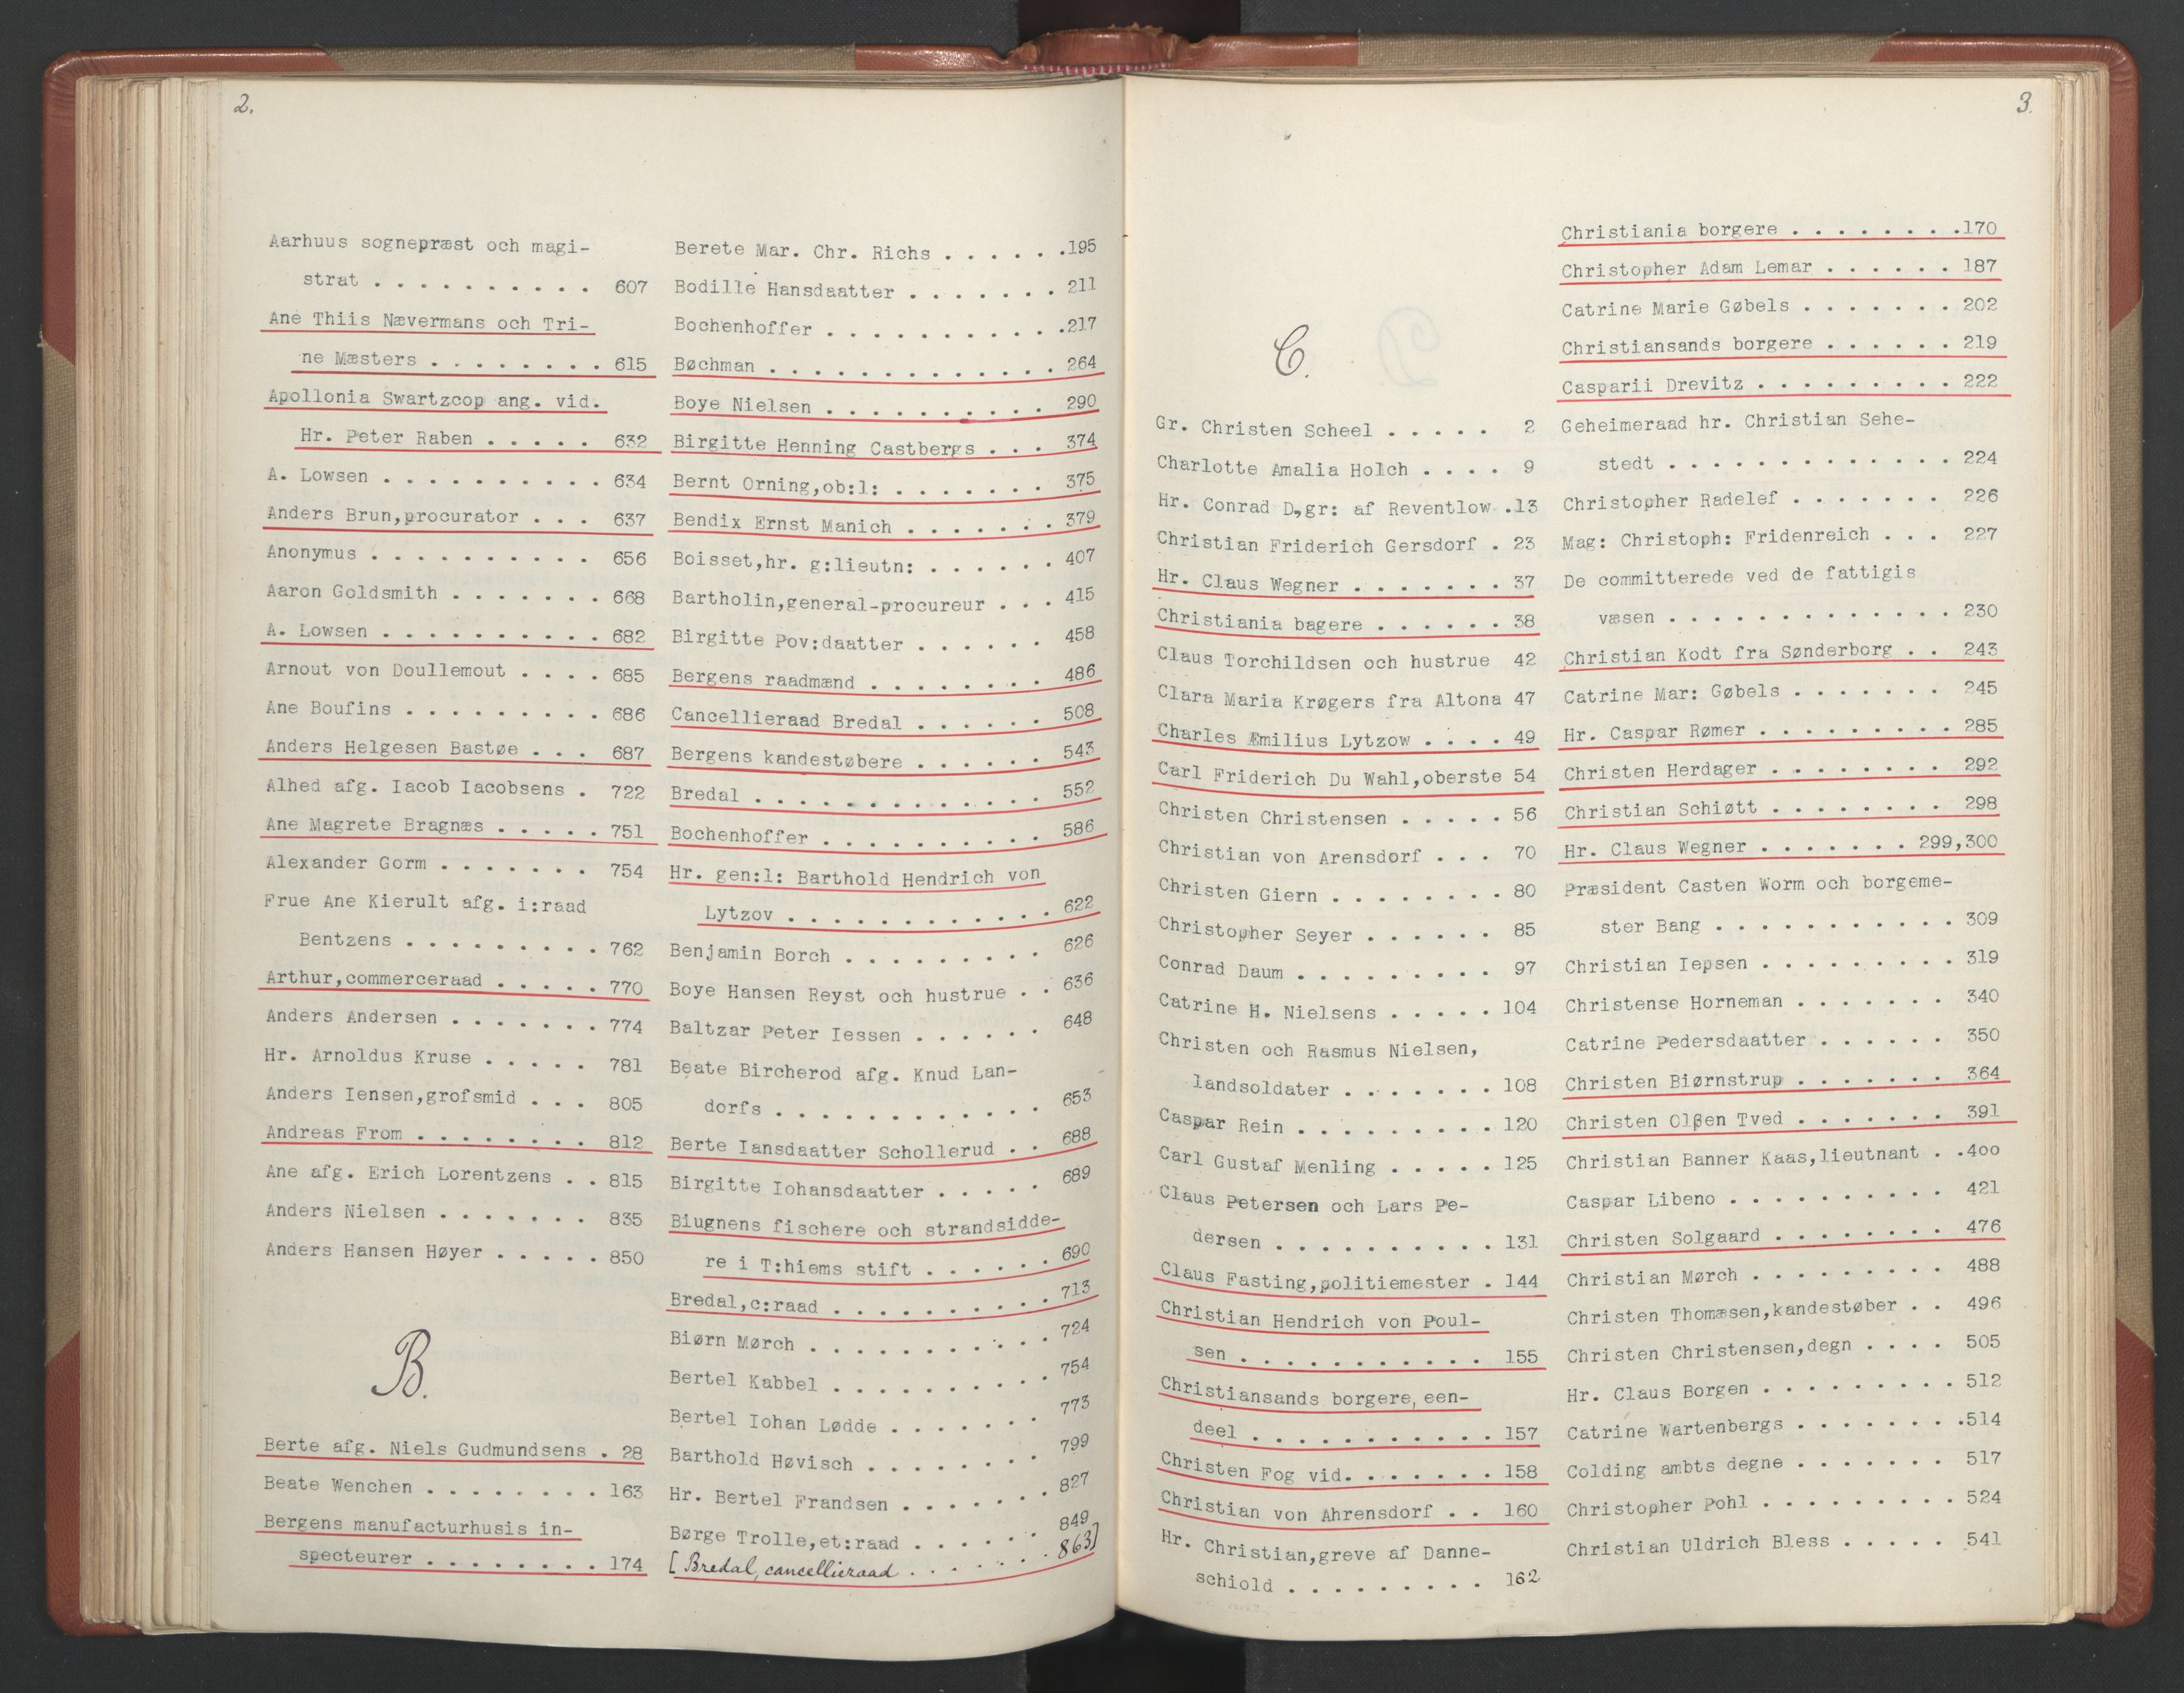 2.
Aarhuus sognepræst och magi-
strat . . . . . . . . . . 607
Ane Thiis Nævermans och Tri-
ne Mæsters . . . . . . . . 615
Apollonia Swartzcop ang. vid.
Hr. Peter Raben . . . . . 632
A. Lowsen . . . . . . . . . . 634
Anders Brun,procurator . . . 637
Anonymus . . . . . . . . . . 656
Aaron Goldsmith . . . . . . . 668
A. Lowsen . . . . . . . . . . 682
Arnout von Doullemout . . . . 685
Ane Boufins . . . . . . . . . 686
Anders Helgesen Bastøe . . . 687
Alhed afg. Iacob Iacobsens . 722
Ane Magrete Bragnæs . . . . . 751
Alexander Gorm . . . . . . . 754
Frue Ane Kierult afg. i:raad
Bentzens . . . . . . . . . 762
Arthur,commerceraad . . . . . 770
Anders Andersen . . . . . . . 774
Hr. Arnoldus Kruse . . . . . 781
Anders Iensen,grofsmid . . . 805
Andreas From . . . . . . . . 812
Ane afg. Erich Lorentzens . . 815
Anders Nielsen . . . . . . . 835
Anders Hansen Høyer . . . . . 850
B.
Berte afg. Niels Gudmundsens . 28
Beate Wenchen . . . . . . . . 163
Bergens manufacturhusis in-
specteurer . . . . . . . . 174
Berete Mar. Chr. Richs . . . . . .195
Bodille Hansdaatter . . . . . . . 211
Bochenhoffer . . . . . . . . . . .217
Bøchman . . . . . . . . . . . . . 264
Boye Nielsen . . . . . . . . . . 290
Birgitte Henning Castbergs . . . 374
Bernt Orning,ob:l: . . . . . . . 375
Bendix Ernst Manich . . . . . . . 379
Boisset,hr. g:lieutn: . . . . . . 407
Bartholin,general-procureur . . . 415
Birgitte Pov:daatter . . . . . . 458
Bergens raadmænd . . . . . . . . 486
Cancellieraad Bredal . . . . . . 508
Bergens kandestøbere . . . . . . 543
Bredal . . . . . . . . . . . . . 552
Bochenhoffer . . . . . . . . . . 586
Hr. gen:l: Barthold Hendrich von
Lytzov . . . . . . . . . . . . 622
Benjamin Borch . . . . . . . . . 626
Boye Hansen Reyst och hustrue . . 636
Baltzar Peter Iessen . . . . . . 648
Beate Bircherod afg. Knud Lan-
dorfs . . . . . . . . . . . . 653
Berte Iansdaatter Schollerud . . 688
Birgitte Iohansdaatter . . . . . 689
Biugnens fischere och strandsidde-
re i T:hiems stift . . . . . . 690
Bredal,c:raad . . . . . . . . . . 713
Biørn Mørch . . . . . . . . . . . 724
Bertel Kabbel . . . . . . . . . . 754
Bertel Iohan Lødde . . . . . . . 773
Barthold Høvisch . . . . . . . . 799
Hr. Bertel Frandsen . . . . . . . 827
Børge Trolle,et:raad . . . . . . 849
[ Bredal, cancellieraad . . . . . . 863]
3.
C.
Gr. Christen Scheel . . . . . 2
Charlotte Amalia Holch . . . . 9
Hr. Conrad D,gr: af Reventlow .13
Christian Friderich Gersdorf . 23
Hr. Claus Wegner . . . . . . . 37
Christiania bagere . . . . . . 38
Claus Torchildsen och hustrue 42
Clara Maria Krøgers fra Altona 47
Charles Æmilius Lytzow . . . . 49
Carl Friderich Du Wahl,oberste 54
Christen Christensen . . . . . 56
Christian von Arensdorf . . . 70
Christen Giern . . . . . . . . 80
Christopher Seyer . . . . . . 85
Conrad Daum . . . . . . . . . 97
Catrine H. Nielsens . . . . . 104
Christen och Rasmus Nielsen,
landsoldater . . . . . . . 108
Caspar Rein . . . . . . . . . 120
Carl Gustaf Menling . . . . . 125
Claus Petersen och Lars Pe-
dersen . . . . . . . . . . 131
Claus Fasting,politiemester . 144
Christian Hendrich von Poul-
sen . . . . . . . . . . . 155
Christiansands borgere, een-
deel . . . . . . . . . . . 157
Christen Fog vid. . . . . . . 158
Christian von Ahrensdorf . . 160
Hr. Christian,greve af Danne-
schiold . . . . . . . . . 162
Christiania borgere . . . . . . . .170
Christopher Adam Lemar . . . . . . 187
Catrine Marie Gøbels . . . . . . . 202
Christiansands borgere . . . . . . 219
Casparii Drevitz . . . . . . . . . 222
Geheimeraad hr. Christian Sehe-
stedt . . . . . . . . . . . . . 224
Christopher Radelef . . . . . . . 226
Mag: Christoph: Fridenreich . . . 227
De committerede ved de fattigis
væsen . . . . . . . . . . . . . 230
Christian Kodt fra Sønderborg . . 243
Catrine Mar: Gøbels . . . . . . . 245
Hr. Caspar Rømer . . . . . . . . . 285
Christen Herdager . . . . . . . . 292
Christian Schiøtt . . . . . . . . 298
Hr. Claus Wegner . . . . . . . 299,300
Præsident Casten Worm och borgeme-
ster Bang . . . . . . . . . . . 309
Christian Iepsen . . . . . . . . . 319
Christense Horneman . . . . . . . 340
Catrine Pedersdaatter . . . . . . 350
Christen Biørnstrup . . . . . . . 364
Christen Olβen Tved . . . . . . . 391
Christian Banner Kaas,lieutnant . .4oo
Caspar Libeno . . . . . . . . . . 421
Christen Solgaard . . . . . . . . 476
Christian Mørch . . . . . . . . . 488
Christen Thomæsen,kandestøber . . 496
Christen Christensen,degn . . . . 505
Hr. Claus Borgen . . . . . . . . . 512
Catrine Wartenbergs . . . . . . . .514
Colding ambts degne . . . . . . . 517
Christopher Pohl . . . . . . . . . 524
Christian Uldrich Bless . . . . . 541